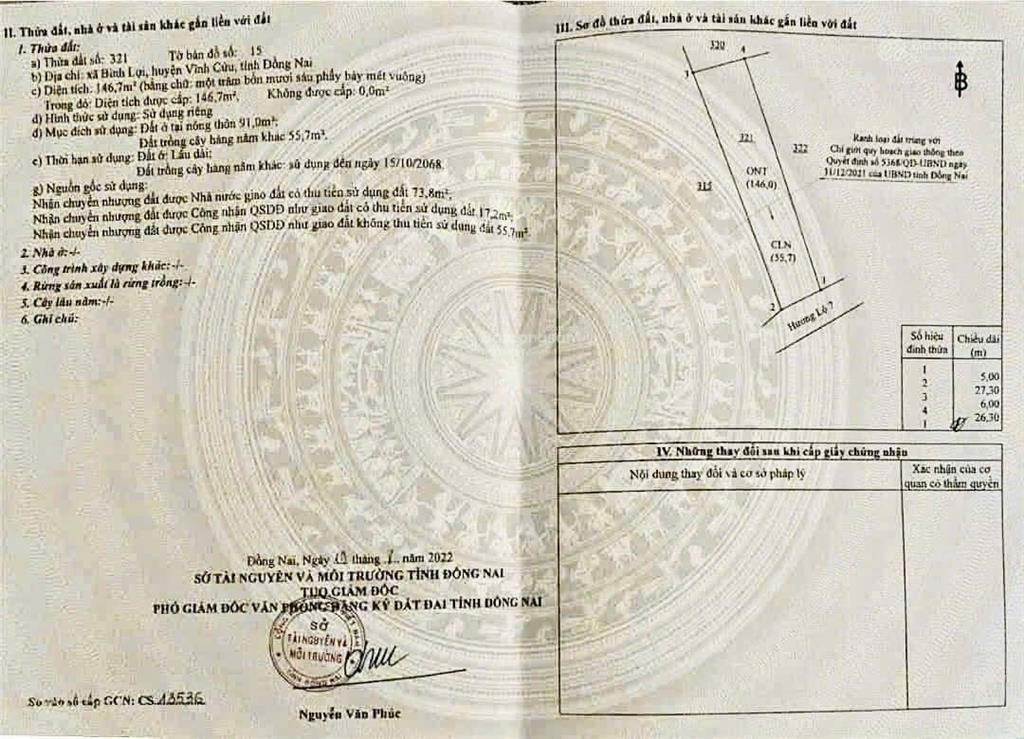 II. Thửa đất, nhà ở và tài sản khác gắn liền với đất
1. Thửa đất:
a) Thửa đất số: 321 Tờ bản đồ số: 15
b) Địa chỉ: xã Bình Lợi, huyện Vĩnh Cửu, tỉnh Đồng Nai
c) Diện tích: 146,7m² (bằng chữ: một trăm bốn mươi sáu phẩy bảy mét vuông)
Trong đó: Diện tích được cấp: 146,7m², Không được cấp: 0,0m²
d) Hình thức sử dụng: Sử dụng riêng
đ) Mục đích sử dụng: Đất ở tại nông thôn 91,0m²;
Đất trồng cây hàng năm khác 55,7m².
e) Thời hạn sử dụng: Đất ở: Lâu dài;
Đất trồng cây hàng năm khác: sử dụng đến ngày 15/10/2068.
g) Nguồn gốc sử dụng:
Nhận chuyển nhượng đất được Nhà nước giao đất có thu tiền sử dụng đất 73,8m²;
Nhận chuyển nhượng đất được Công nhận QSDĐ như giao đất có thu tiền sử dụng đất 17,2m²;
Nhận chuyển nhượng đất được Công nhận QSDĐ như giao đất không thu tiền sử dụng đất 55,7m².
2. Nhà ở:-/-
3. Công trình xây dựng khác:-/-
4. Rừng sản xuất là rừng trồng:-/-
5. Cây lâu năm:-/-
6. Ghi chú:
Đồng Nai, Ngày tháng năm 2022
SỞ TÀI NGUYÊN VÀ MÔI TRƯỜNG TỈNH ĐỒNG NAI
TUQ GIÁM ĐỐC
PHÓ GIÁM ĐỐC VĂN PHÒNG ĐĂNG KÝ ĐẤT ĐAI TỈNH ĐỒNG NAI
SỞ
TÀI NGUYÊN VÀ
MÔI TRƯỜNG
TỈNH ĐỒNG NAI
Nguyễn Văn Phúc
Số vào sổ cấp GCN: CS 13536
III. Sơ đồ thửa đất, nhà ở và tài sản khác gắn liền với đất
320
3
4
B
321
322
315
ONT
(146,0)
CLN
(55,7)
1
2
Hương Lộ 7
Ranh loại đất trùng với
Chỉ giới quy hoạch giao thông theo
Quyết định số 5368/QĐ-UBND ngày
31/12/2021 của UBND tỉnh Đồng Nai
Số hiệu đỉnh thửa Chiều dài (m)
1
5,00
2
27,30
3
6,00
4
26,30
1
IV. Những thay đổi sau khi cấp giấy chứng nhận
Nội dung thay đổi và cơ sở pháp lý
Xác nhận của cơ
quan có thẩm quyền